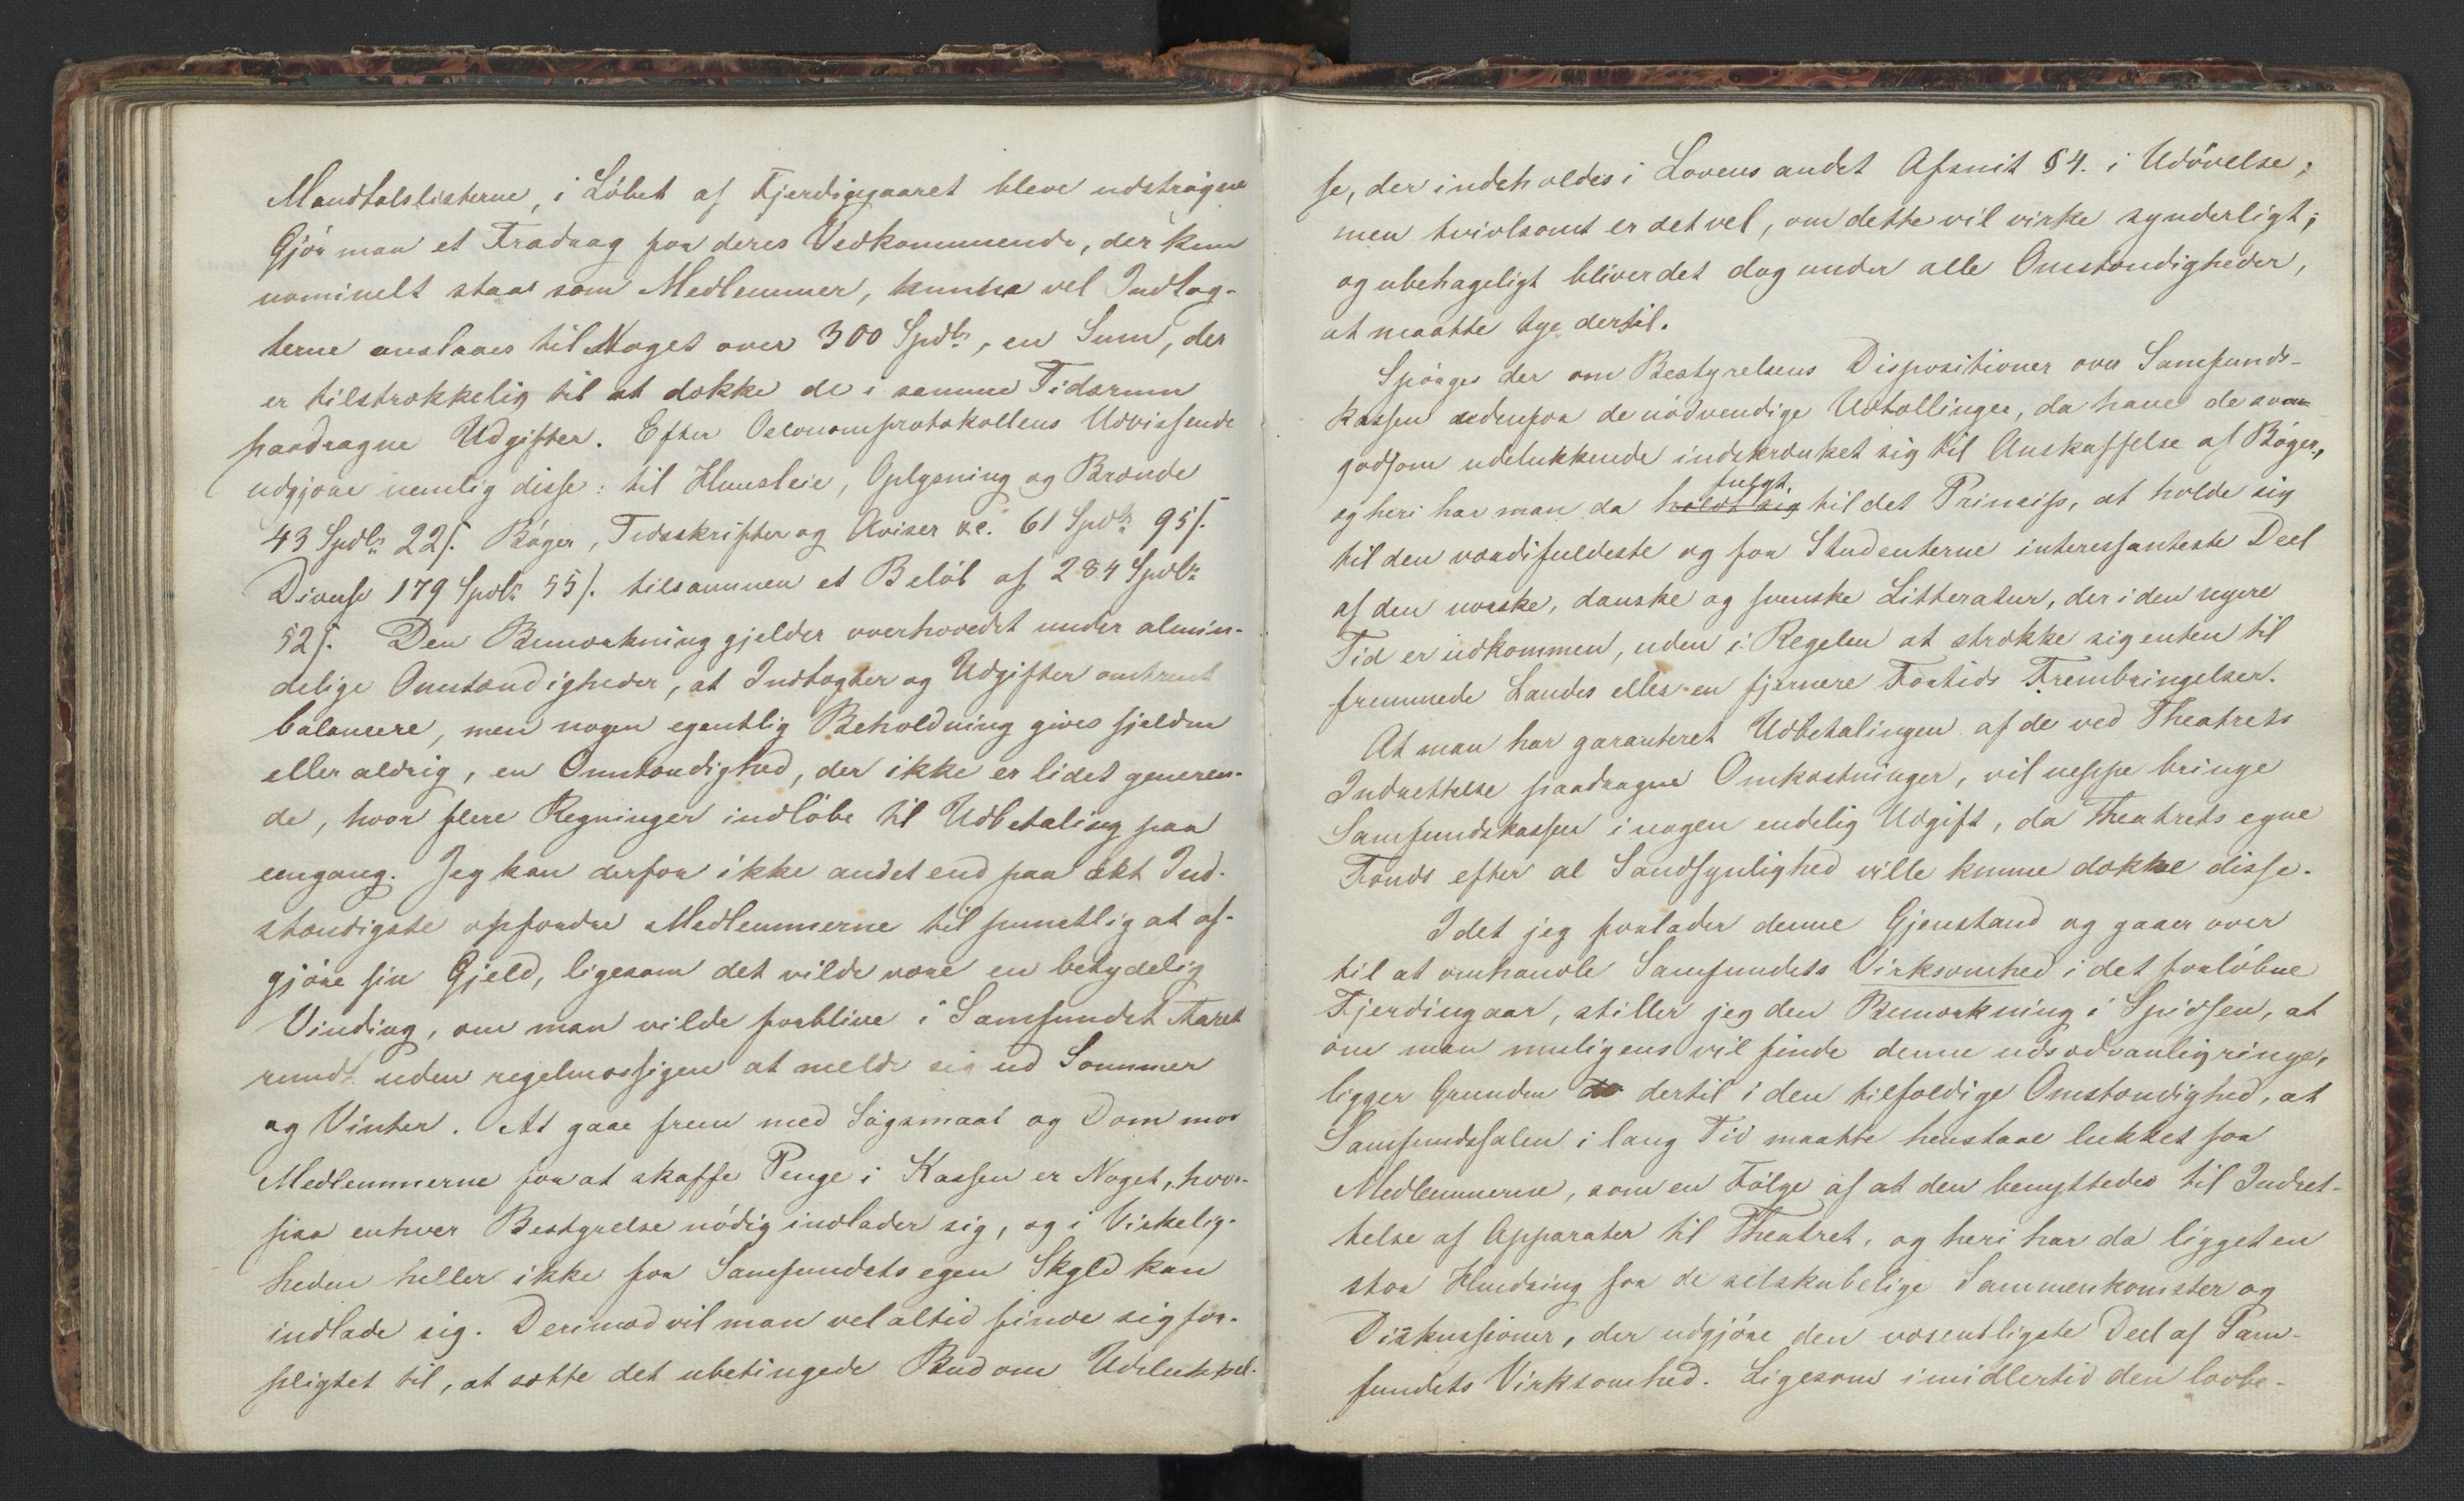 Mandtalslisterne, i Löbet af Fjerdiggaaret bleve udströgne
Gjör man et Fradrag for deres Vedkommende, der kun
nominelt staae som Medlemmer, kunne vel Indtæg-
terne anslaaes til Noget over 300 Spdlr, en Sum, der
er tilstrækkelig til at dække de i samme Tidsrum
paadragne Udgifter. Efter Oeconomprotokollens Udvisende
udgjøre nemlig disse: til Huusleie, Oplysning og Brænde
43 Spdlr 22 s. Böger, Tidsskrifter og Aviser &c. 61 Spdlr 95 s.
Diverse 179 Spdlr 55 s. tilsammen et Belöb af 284 Spdlr
52 s. Den Bemærkning gjelder overhovedet under almin-
delige Omstændigheder, at Indtægter og Udgifter omtrent
balancere, men nogen egentlig Beholdning gives sjelden
eller aldrig, en Omstændighed, der ikke er lidet generen-
de, hvor flere Regninger indlöbe til Udbetaling paa
eengang. Jeg kan derfor ikke andet end paa det Ind-
stændigste opfordre Medlemmerne til punctlig at af-
gjöre sin Gjeld, ligesom det vilde være en betydelig
Vinding, om man vilde forblive i Samfundet Aaret
rundt uden regelmæssigen at melde sig ud Sommer
og Vinter. At gaae frem med Sögsmaal og Dom mod
Medlemmerne for at skaffe Penge i Kassen er Noget, hvor-
paa enhver Bestyrelse nödig indlader sig, og i Virkelig-
heden heller ikke for Samfundets egen Skyld kan
indlade sig. Derimod vil man vel altid finde sig for-
pligtet til, at sætte det ubetingede Bud om Udelukkel-
se, der indeholdes i Lovens andet Afsnit § 4. i Udövelse;
men tvivlsomt er det vel, om dette vil virke synderligt;
og ubehageligt bliver det dog under alle Omstændigheder,
at maatte tye dertil.
Spörges der om Bestyrelsens Dispositioner over Samfunds-
kassen udenfor de nödvendige Udtællinger, da have de saa-
godsom udelukkende indskrænket sig til Anskaffelse af Böger,
fulgt
og heri har man da holdt sig til det Princip, at holde sig
til den værdifuldeste og for Studenterne interessanteste Deel
af den norske, danske og svenske Litteratur, der i den nyere
Tid er udkommen, uden i Regelen at strække sig enten til
fremmede Landes eller en fjernere Fortids Frembringelser.
At man har garanteret Udbetalingen af de ved Theatrets
Indrettelse paadragne Omkostninger, vil neppe bringe
Samfundskassen i nogen endelig Udgift, da Theatrets egne
Fonds efter al Sandsynlighed ville kunne dække disse.
Idet jeg forlader denne Gjenstand og gaaer over
til at omhandle Samfundets Virksomhed i det forlöbne
Fjerdingaar, stiller jeg den Bemærkning i Spidsen, at
om man muligens vil finde denne udsædvanlig ringe,
ligger Grunden dertil i den tilfældige Omstændighed, at
Samfundssalen i lang Tid maatte henstaae lukket for
Medlemmerne, som en Fölge af at den benyttedes til Indret-
telse af Apparater til Theatret, og heri har da ligget en
stor Hindring for de selskabelige Sammenkomster og
Diskussioner, der udgjöre den væsentligste Deel af Sam-
fundets Virksomhed. Ligesom imidlertid den lovbe-